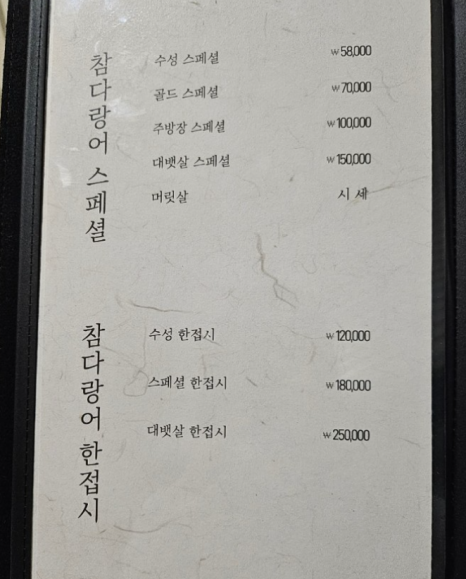 참다랑어 스페셜
수성 스페셜 ₩58,000
골드 스페셜 ₩70,000
주방장 스페셜 ₩100,000
대뱃살 스페셜 ₩150,000
머릿살 시 세
참다랑어 한접시
수성 한접시 ₩120,000
스페셜 한접시 ₩180,000
대뱃살 한접시 ₩250,000